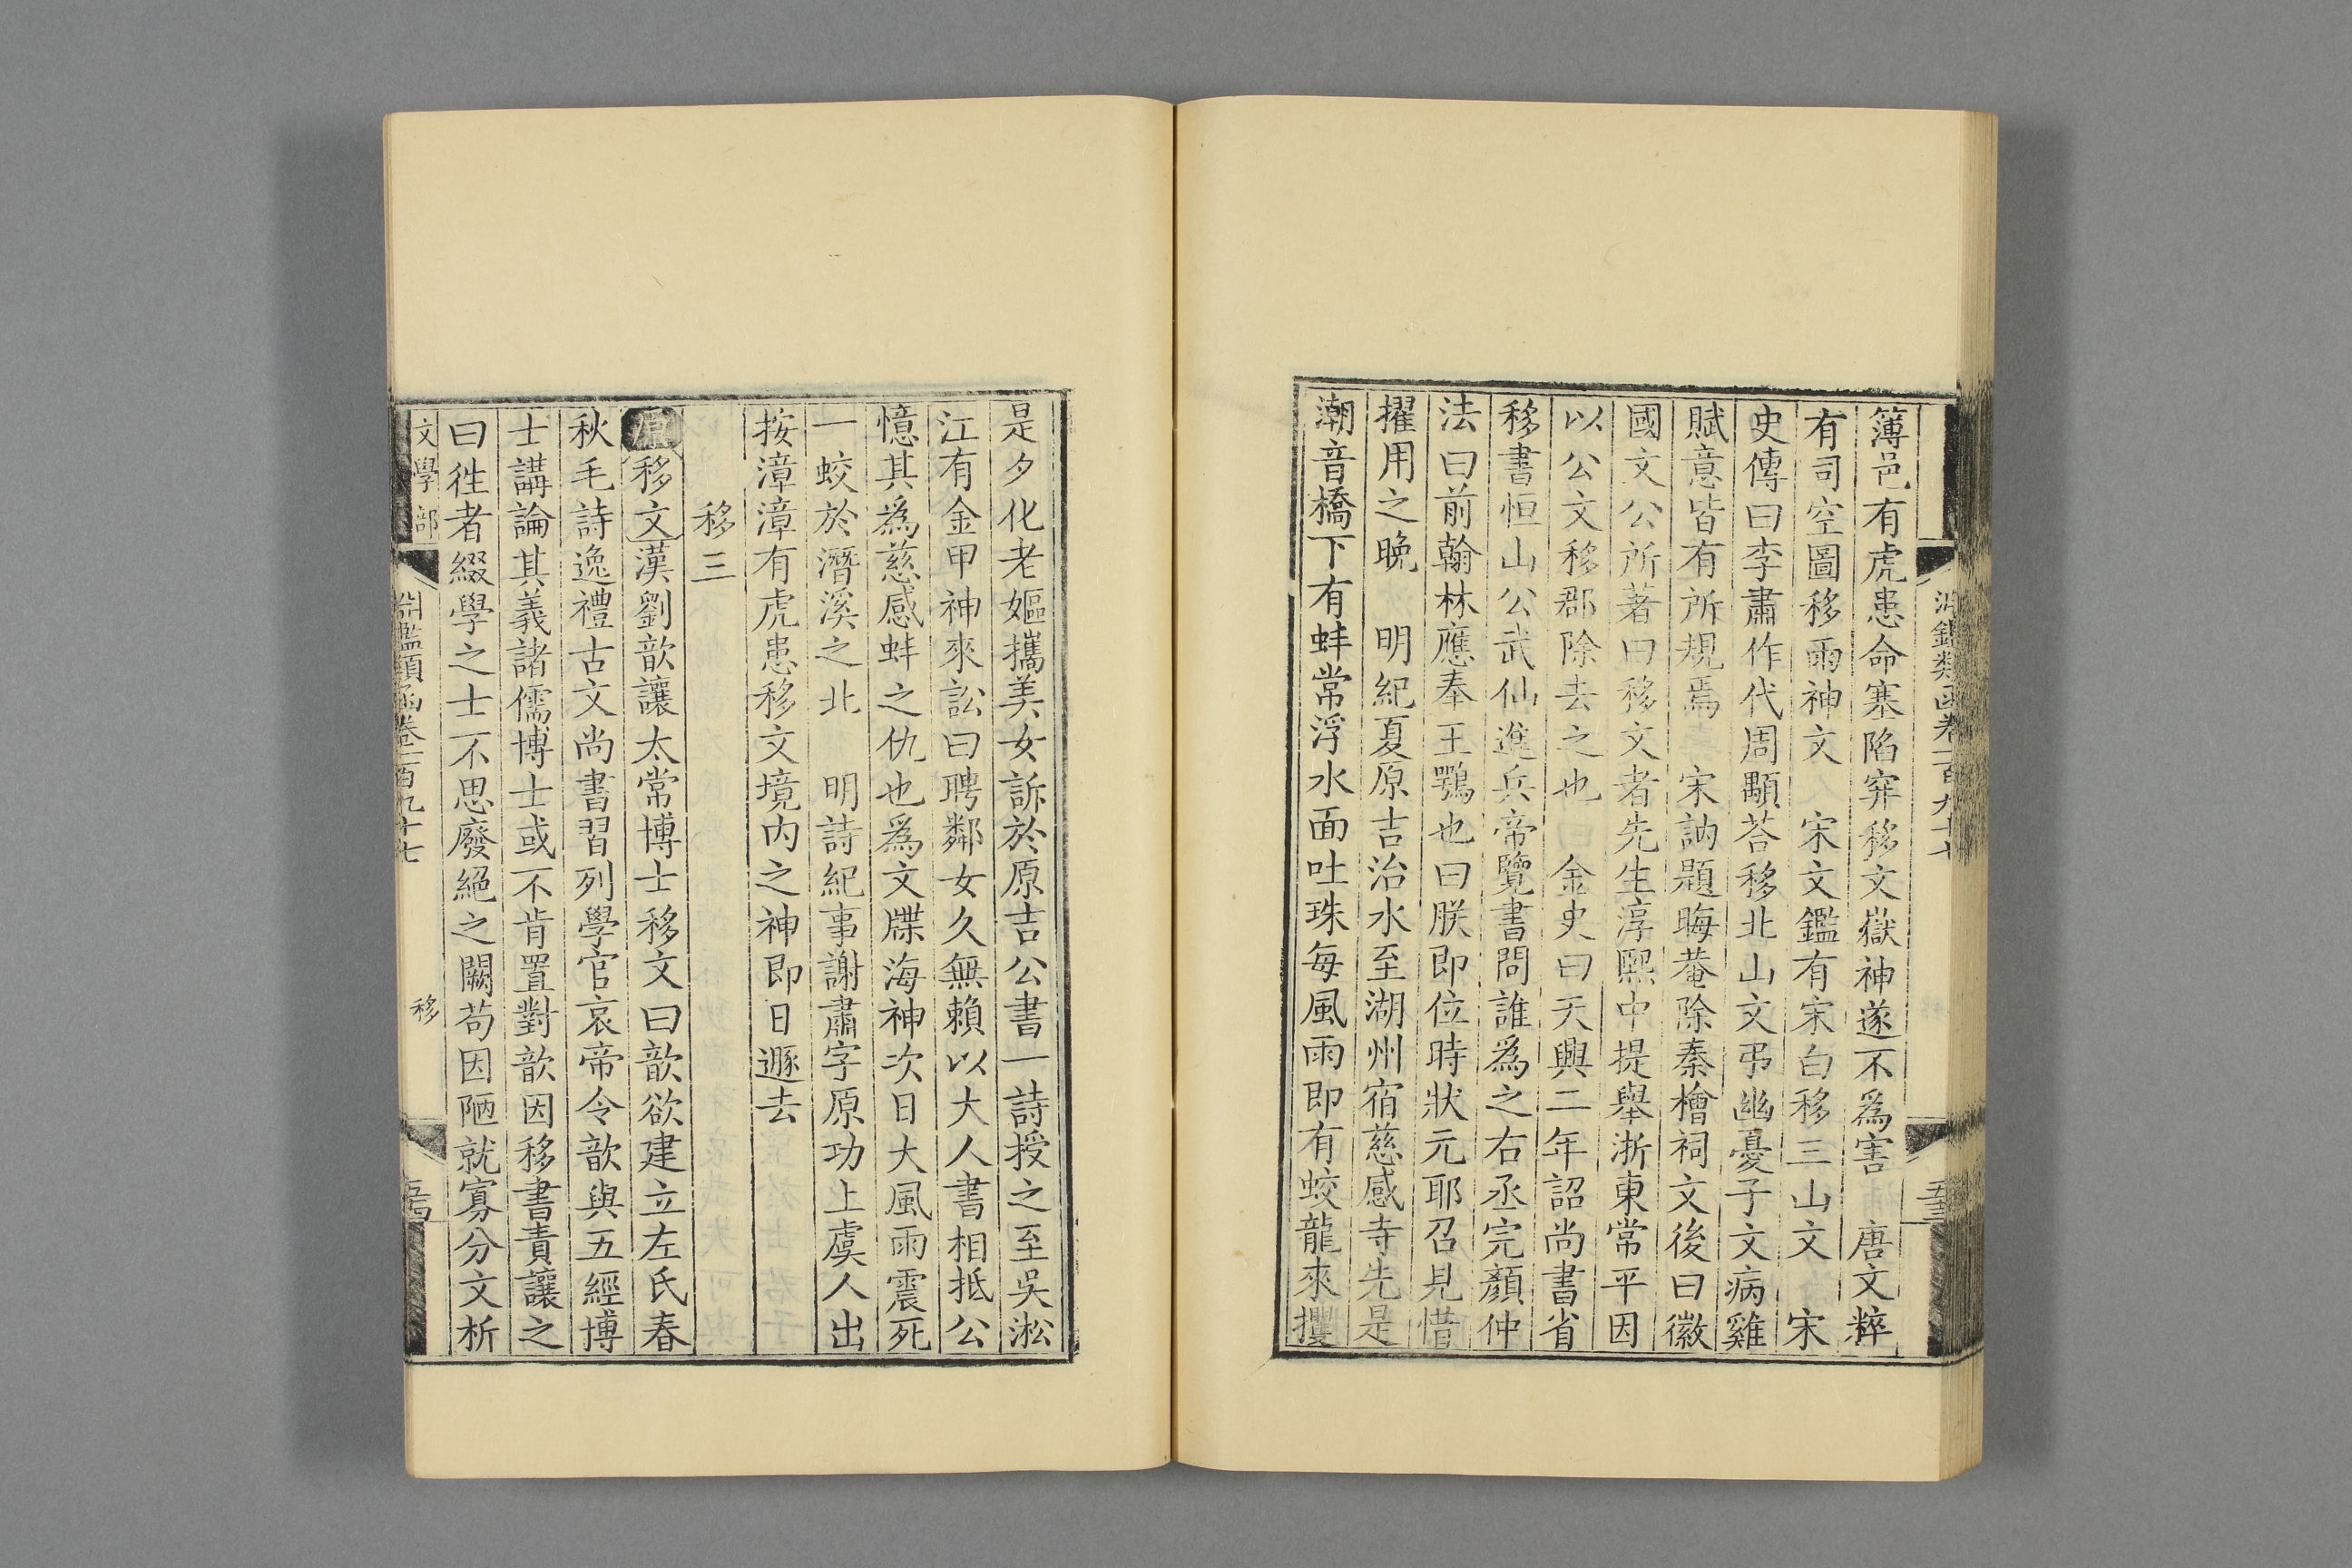 淵鑑類函卷一百九十七
簿邑有虎患命塞陷穽移文嶽神遂不為害　唐文粹
有司空圖移雨神文　宋文鑑有宋白移三山文　宋
史傳曰李肅作代周顒荅移北山文弔幽憂子文病雞
賦意皆有所規焉　宋訥題晦菴除秦檜祠文後曰徽
國文公所著曰移文者先生淳熙中提舉浙東常平因
以公文移郡除去之也　金史曰天興二年詔尚書省
移書恒山公武仙進兵帝覽書問誰為之右丞完顏仲
法曰前翰林應奉王鶚也曰朕即位時狀元耶召見惜
擢用之晚　明紀夏原吉治水至湖州宿慈感寺先是
潮音橋下有蚌常浮水面吐珠每風雨即有蛟龍來攫
是夕化老嫗攜美女訴於原吉公書一詩授之至吳淞
江有金甲神來訟曰聘鄰女久無賴以大人書相抵公
憶其為慈感蚌之仇也為文牒海神次日大風雨震死
一蛟於潛溪之北　明詩紀事謝肅字原功上虞人出
按漳漳有虎患移文境内之神即日遯去
移三
原移文漢劉歆讓太常博士移文曰歆欲建立左氏春
秋毛詩逸禮古文尚書習列學官哀帝令歆與五經博
士講論其義諸儒博士或不肯置對歆因移書責讓之
曰徃者綴學之士不思廢絕之闕茍因陋就寡分文析
文學部
淵鑑類函卷一百九十七
移